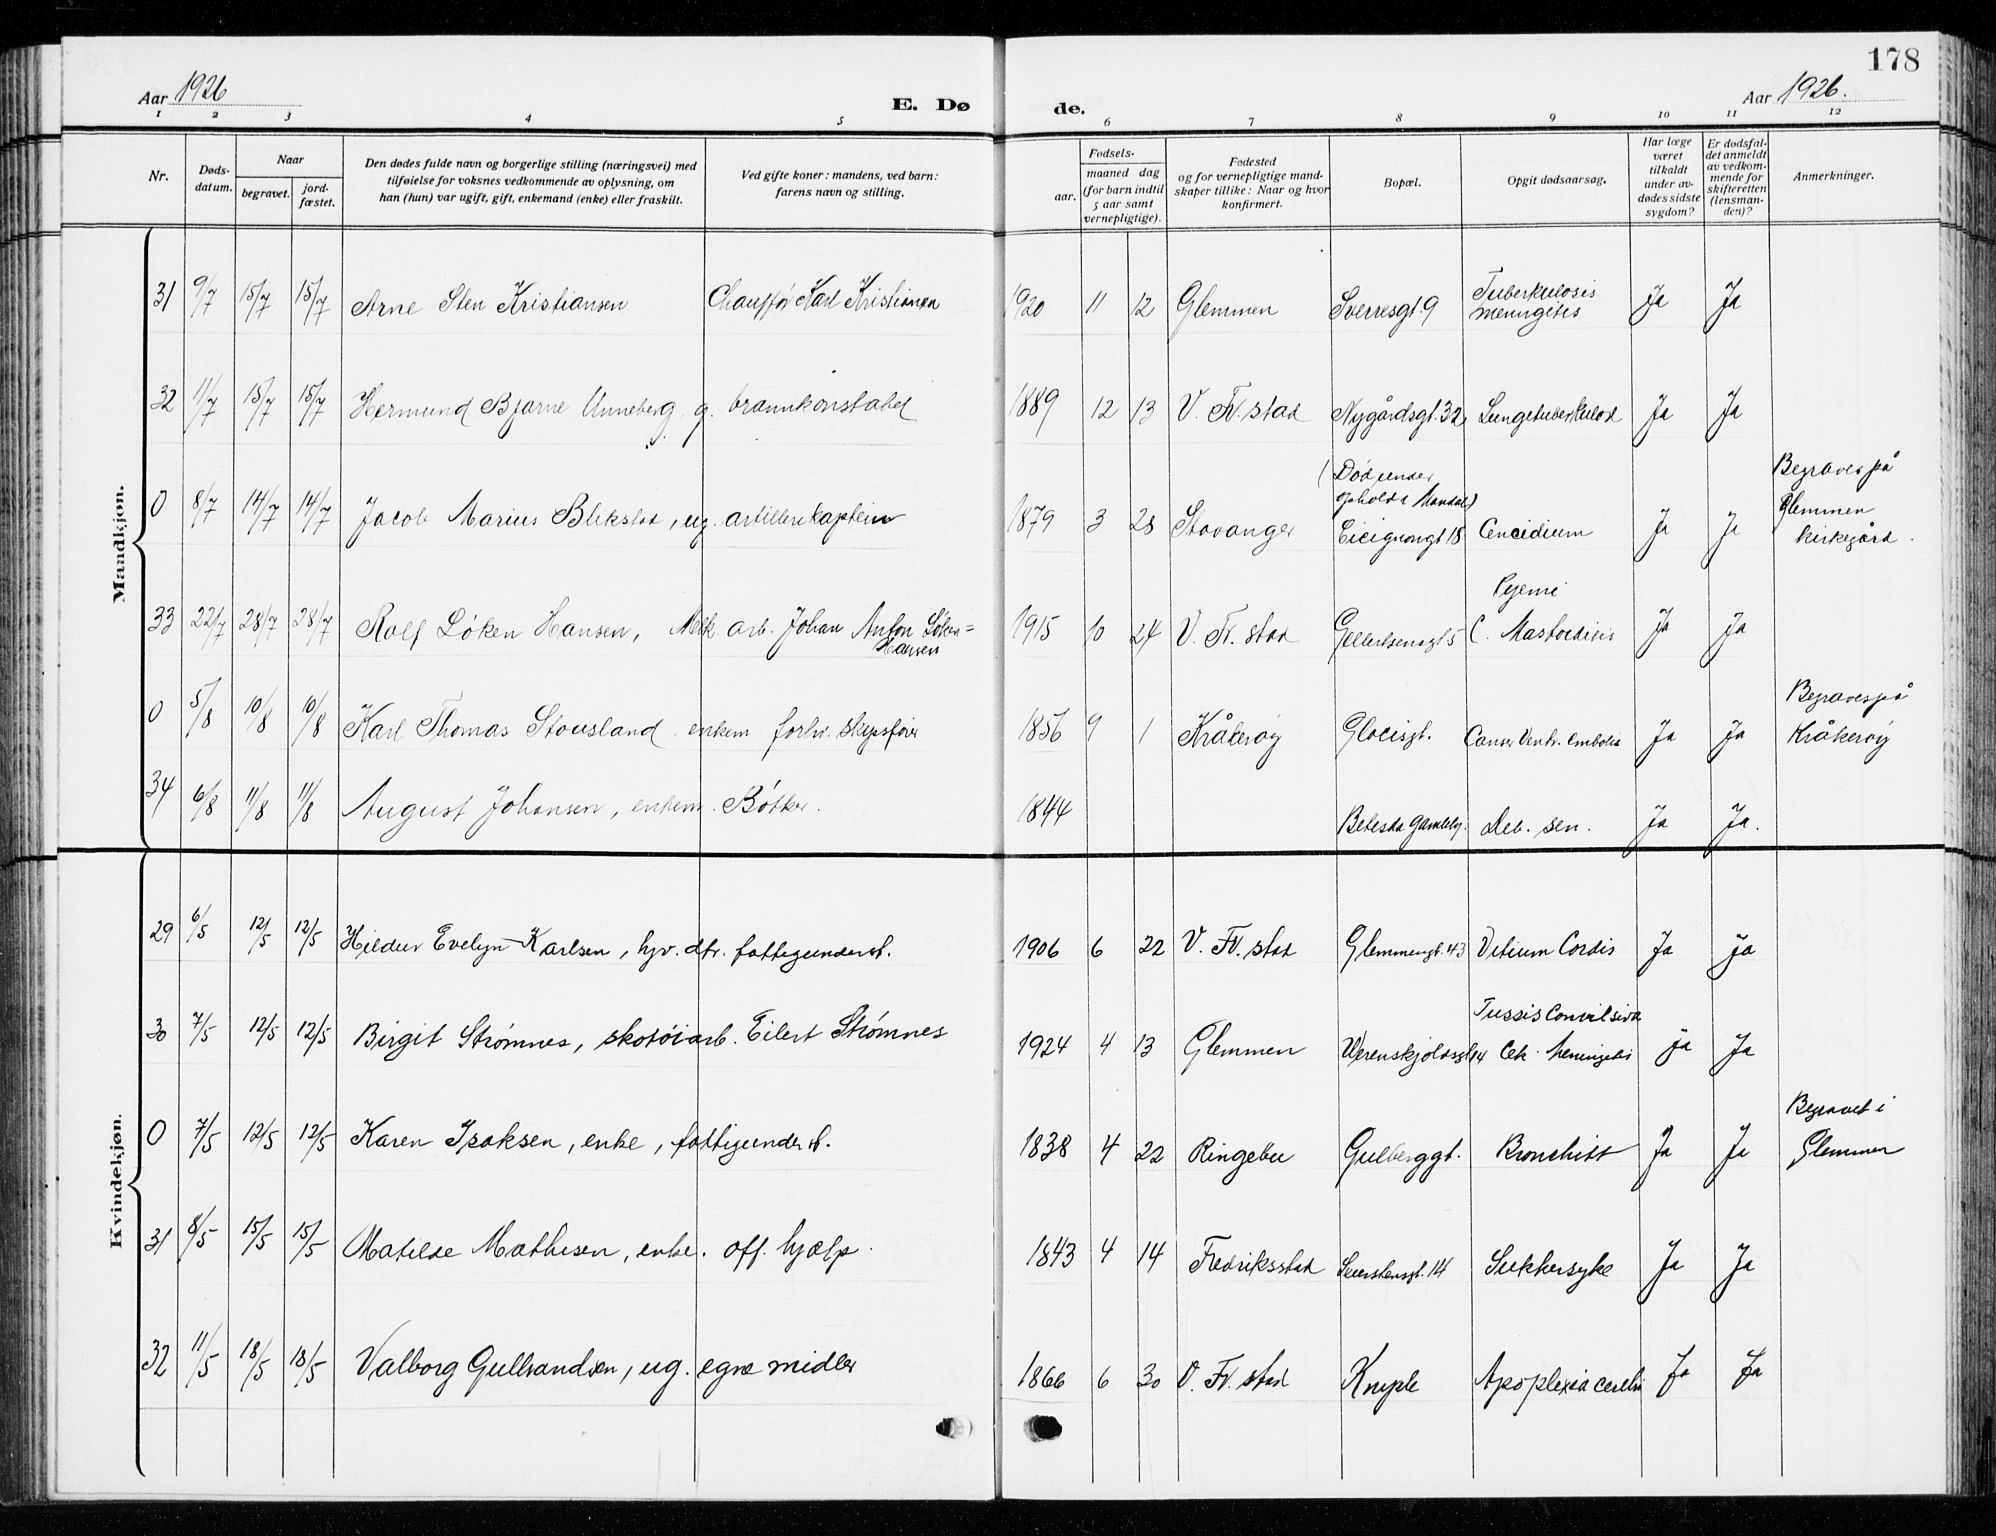 178
Aar 1926 E. Dø de. Aar 1926.
1 2 3 4 5 6 7 8 9 10 11 12
Nr. Døds-datum. Naar begravet. jord-fæstet. Den dødes fulde navn og borgerlige stilling (næringsvei) med tilføielse for voksnes vedkommende av oplysning, om han (hun) var ugift, gift, enkemand (enke) eller fraskilt. Ved gifte koner: mandens, ved barn: farens navn og stilling. Fødsels- aar. maaned dag (for barn indtil 5 aar samt vernepligtige). Fødested og for vernepligtige mand-skaper tillike: Naar og hvor konfirmert. Bopæl. Opgit dødsaarsag. Har læge været tilkaldt under av-dødes sidste sygdom? Er dødsfal-det anmeldt av vedkom-mende for skifteretten (lensman-den)? Anmerkninger.
Mandkjøn.
31 9/7 15/7 15/7 Arne Sten Kristiansen Chauffør Karl Kristiansen 1920 11 12 Glemmen Sverresgt. 9 Tuberkulosis meningitis Ja Ja
32 11/7 15/7 15/7 Hermund Bjarne Unneberg, g. brannkonstabel 1889 12 13 V. Fr. stad Nygårdsgt. 32 Lungetuberkulose Ja Ja
0 8/7 14/7 14/7 Jacob Marius Blikstad, ug. artillerikaptein 1879 3 28 Stavanger (Død under ophold i Mandal) Cicignongt 18 Ja Ja Begraves på Glemmen kirkegård.
33 22/7 28/7 28/7 Rolf Løken Hansen, Mek. arb. Johan Anton Løken=Hansen 1915 10 24 V. Fr. stad Gellertsensgt 5 Pyemi C. Mastoiditis Ja Ja
0 5/8 10/8 10/8 Karl Thomas Stousland enkem forhv. skipsfører 1856 9 1 Kråkerøy Glocisgt. Cancer Ventr. Emboli Ja Ja Begraves på Kråkerøy
34 6/8 11/8 11/8 August Johansen, enkem. Bøtker. 1844 Betesda Gamleby. Deb. sen. Ja Ja.
Kvindekjøn.
29 6/5 12/5 12/5 Hildur Evelyn Karlsen, hjv. dtr. fattigunderst. 1906 6 22 V. Fr. stad Glemmengt. 43 Vitium Cordis Ja ja
30 7/5 12/5 12/5 Birgit Strømnes, skotøiarb. Eilert Strømnes 1924 4 13 Glemmen Werenskjoldsgt 14 Tussis Convulsiva Cer. Meningitis ja Ja
0 7/5 12/5 12/5 Karen Isaksen, enke, fattigunderst. 1838 4 22 Ringebu Gulberggt. Bronchitt Ja Ja Begravet i Glemmen
31 8/5 15/5 15/5 Matilde Mathisen, enke. off. hjælp. 1843 4 14 Fredriksstad Seierstensgt. 14 Sukkersyke Ja Ja
32 11/5 18/5 18/5 Valborg Gulbrandsen, ug. egne midler 1866 6 30 V. Fr. stad Knyple Apoplexia cerebri Ja Ja